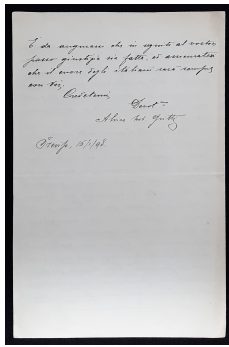 È da augurarsi che in seguito al vostro
passo giustizia sia fatta, vi assicuro
che il cuore degli italiani sarà sempre
con Voi.
Credetemi
Devot.mo
Firenze, 15/1/98